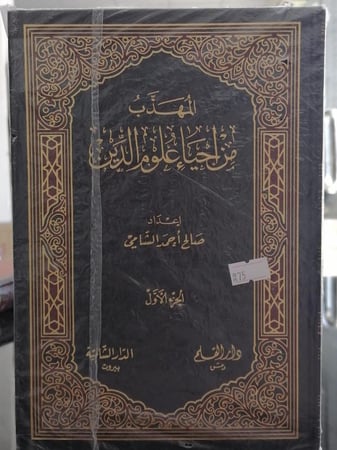 المهذَّب
من إحياء علوم الدين
إعداد
صالح أحمد الشامي
275
الجزء الأول
دار القلم
دمشق
الدار الشامية
بيروت